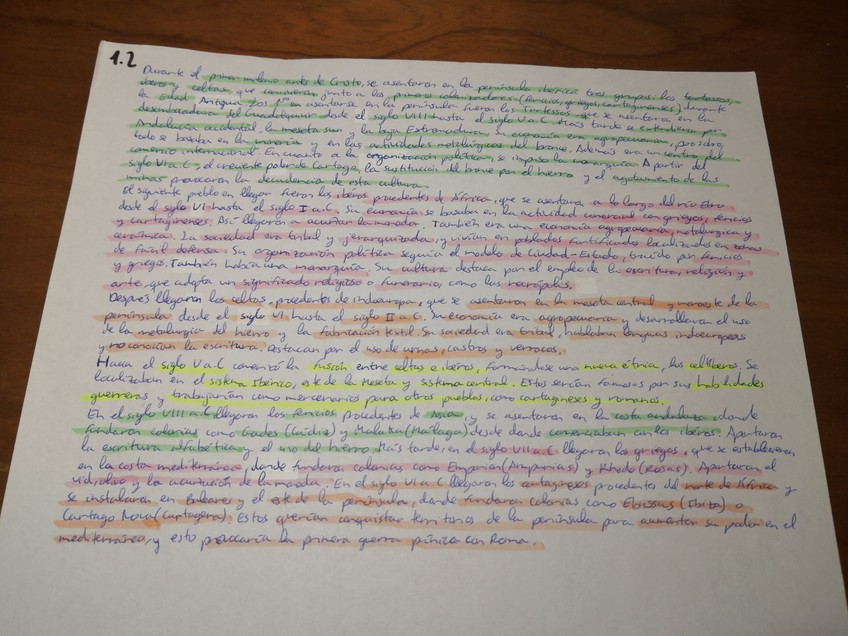 1.2
Durante el primer milenio antes de Cristo, se asentaron en la península ibérica tres grupos: los tartessos,
íberos y celtas, que convivieron junto a los primeros colonizadores (fenicios, griegos, cartaginenses) durante
la Edad Antigua. Los 1os en asentarse en la península fueron los Tartessos que se asentaron en la
desembocadura del Guadalquivir desde el siglo VIII hasta el siglo V a.C. Más tarde se extendieron por
Andalucía occidental, la meseta sur y la baja Extremadura. Su economía era agropecuaria, pero
todo se basaba en la minería y en las actividades metalúrgicas del bronce. Además era un centro del
comercio internacional. En cuanto a la organización política, se impuso la monarquía. A partir del
siglo VI a.C., el creciente poder de Cartago, la sustitución del bronce por el hierro y el agotamiento de las
minas provocaron la decadencia de esta cultura.
El siguiente pueblo en llegar fueron los íberos procedentes de África, que se asentaron a lo largo del río Ebro
desde el siglo VI hasta el siglo I a.C. Su economía se basaba en la actividad comercial con griegos, fenicios
y cartagineses. Así llegaron a acuñar la moneda. También era una economía agropecuaria, metalúrgica y
cerámica. La sociedad era tribal y jerarquizada, y vivían en poblados fortificados localizados en zonas
de fácil defensa. Su organización política seguía el modelo de Ciudad-Estado, traído por fenicios
y griegos. También había una monarquía. Su cultura destaca por el empleo de la escritura, religión y
arte, que adopta un significado religioso o funerario, como las necrópolis.
Despues llegaron los celtas, procedentes de indoeuropa, que se asentaron en la meseta central y noroeste de la
península desde el siglo VI hasta el siglo II a.C. Su economía era agropecuaria y desarrollaron el uso
de la metalurgia del hierro y la fabricación textil. Su sociedad era tribal, hablaban lenguas indoeuropeas
y no conocían la escritura. Destacan por el uso de urnas, castros y verracos.
Hacia el siglo V a.C comenzó la fusión entre celtas e íberos, formándose una nueva étnica, los celtíberos. Se
localizaban en el sistema Ibérico, este de la Meseta y sistema central. Estos serían famosos por sus habilidades
guerreras y trabajarían como mercenarios para otros pueblos, como cartagineses y romanos.
En el siglo VIII a.C llegaron los fenicios procedentes de Asia, y se asentaron en la costa andaluza, donde
fundaron colonias como Gades (Cádiz) y Malaka (Málaga) desde donde comerciaban con los íberos. Aportaron
la escritura alfabética y el uso del hierro. Más tarde, en el siglo VII a.C llegaron los griegos, que se establecieron
en la costa mediterránea, donde fundaron colonias como Emporion (Ampurias) y Rhode (Rosas). Aportaron el
vid, olivo y la acuñación de la moneda. En el siglo VI a.C llegaron los cartagineses procedentes del norte de África y
se instalaron en Baleares y el este de la península, donde fundaron colonias como Ebussus (Ibiza) o
Cartago Nova (Cartagena). Estos querían conquistar territorios de la península para aumentar su poder en el
mediterráneo, y esto provocaría la primera guerra púnica con Roma.